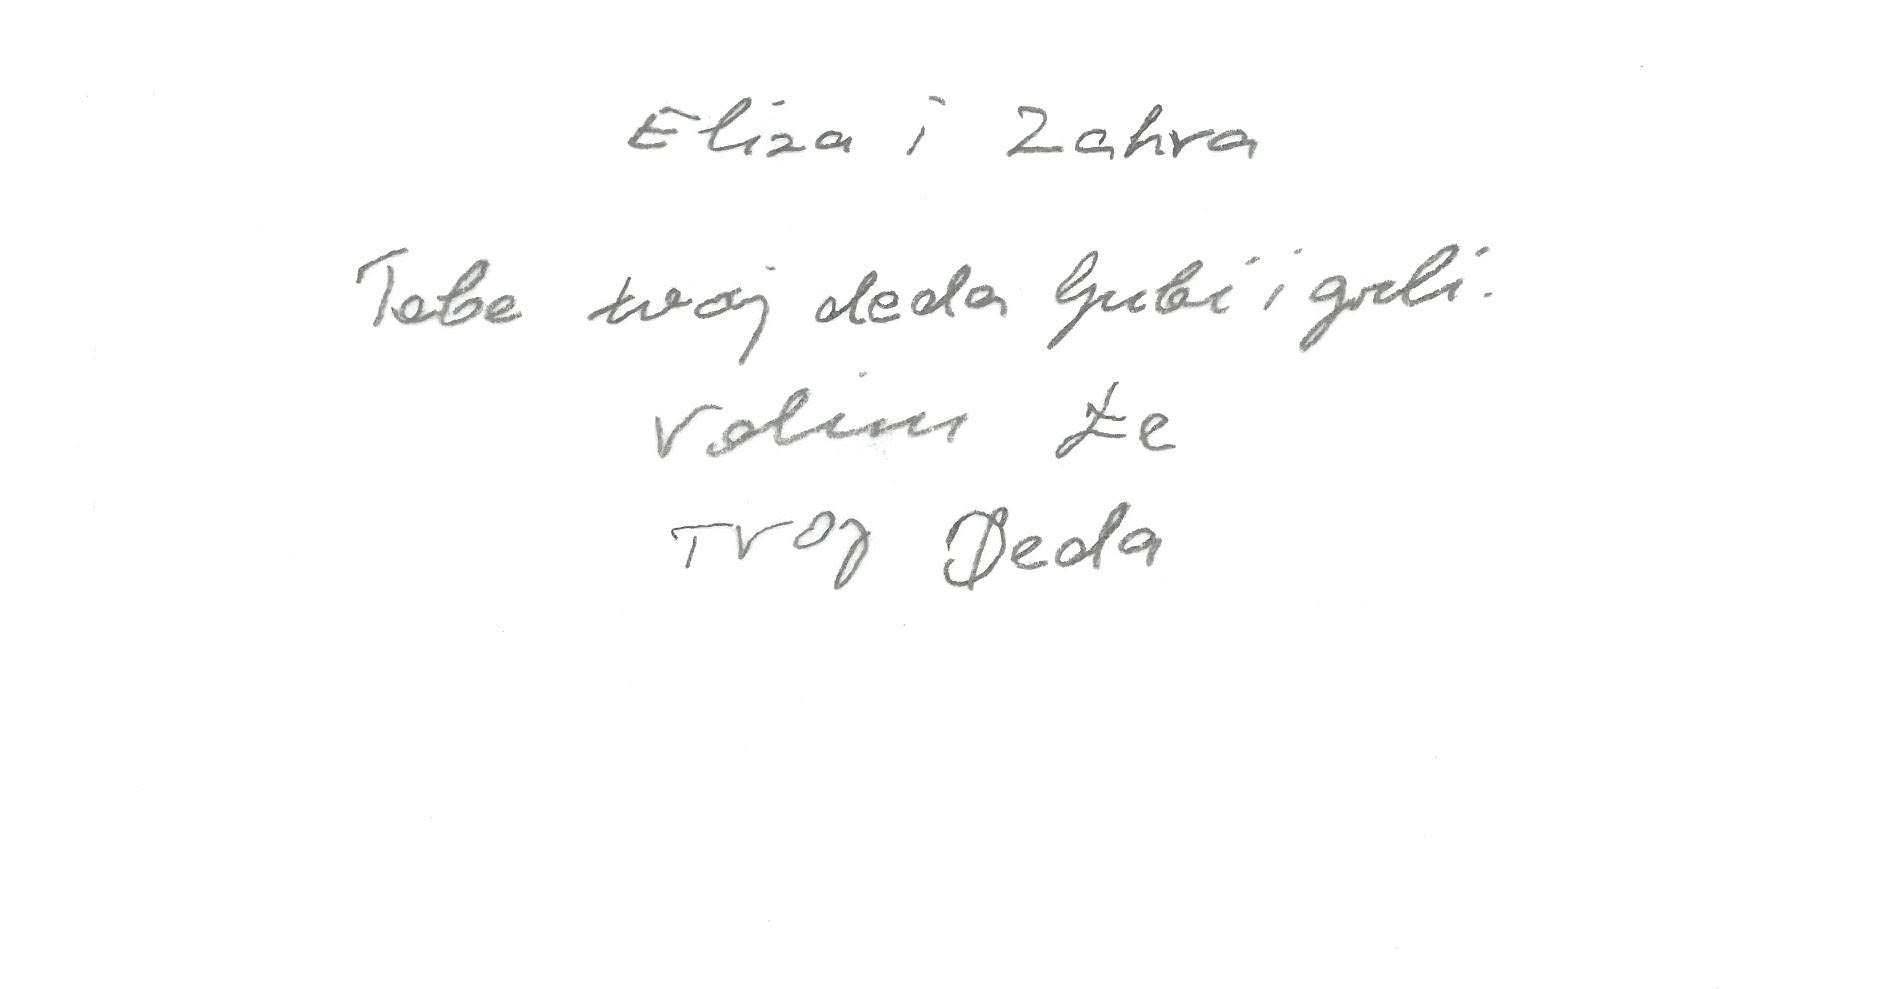 Eliza i Zahra
Tebe tvoj deda ljubi i grli.
Volim te
Tvoj Deda